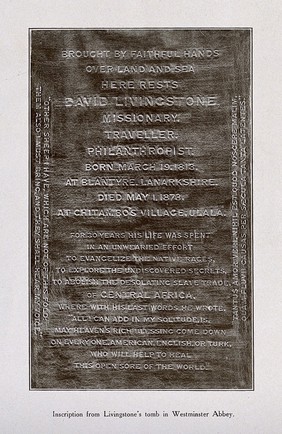 BROUGHT BY FAITHFUL HANDS
OVER LAND AND SEA
HERE RESTS
DAVID LIVINGSTONE,
MISSIONARY,
TRAVELLER,
PHILANTHROPIST,
BORN MARCH 19. 1813,
AT BLANTYRE, LANARKSHIRE,
DIED MAY 1, 1873,
AT CHITAMBO'S VILLAGE, ULALA.
FOR 30 YEARS HIS LIFE WAS SPENT
IN AN UNWEARIED EFFORT
TO EVANGELIZE THE NATIVE RACES,
TO EXPLORE THE UNDISCOVERED SECRETS,
TO ABOLISH THE DESOLATING SLAVE TRADE,
OF CENTRAL AFRICA,
WHERE WITH HIS LAST WORDS HE WROTE,
"ALL I CAN ADD IN MY SOLITUDE, IS,
MAY HEAVEN'S RICH BLESSING COME DOWN
ON EVERY ONE, AMERICAN, ENGLISH, OR TURK,
WHO WILL HELP TO HEAL
THIS OPEN SORE OF THE WORLD."
OTHER SHEEP I HAVE, WHICH ARE NOT OF THIS FOLD:
THEM ALSO I MUST BRING, AND THEY SHALL HEAR MY VOICE.
TANTUS AMOR VERI, NIHIL EST QUOD NOSCERE MALIM,
QUAM FLUVII CAUSAS PER SÆCULA TANTA LATENTES.
Inscription from Livingstone's tomb in Westminster Abbey.